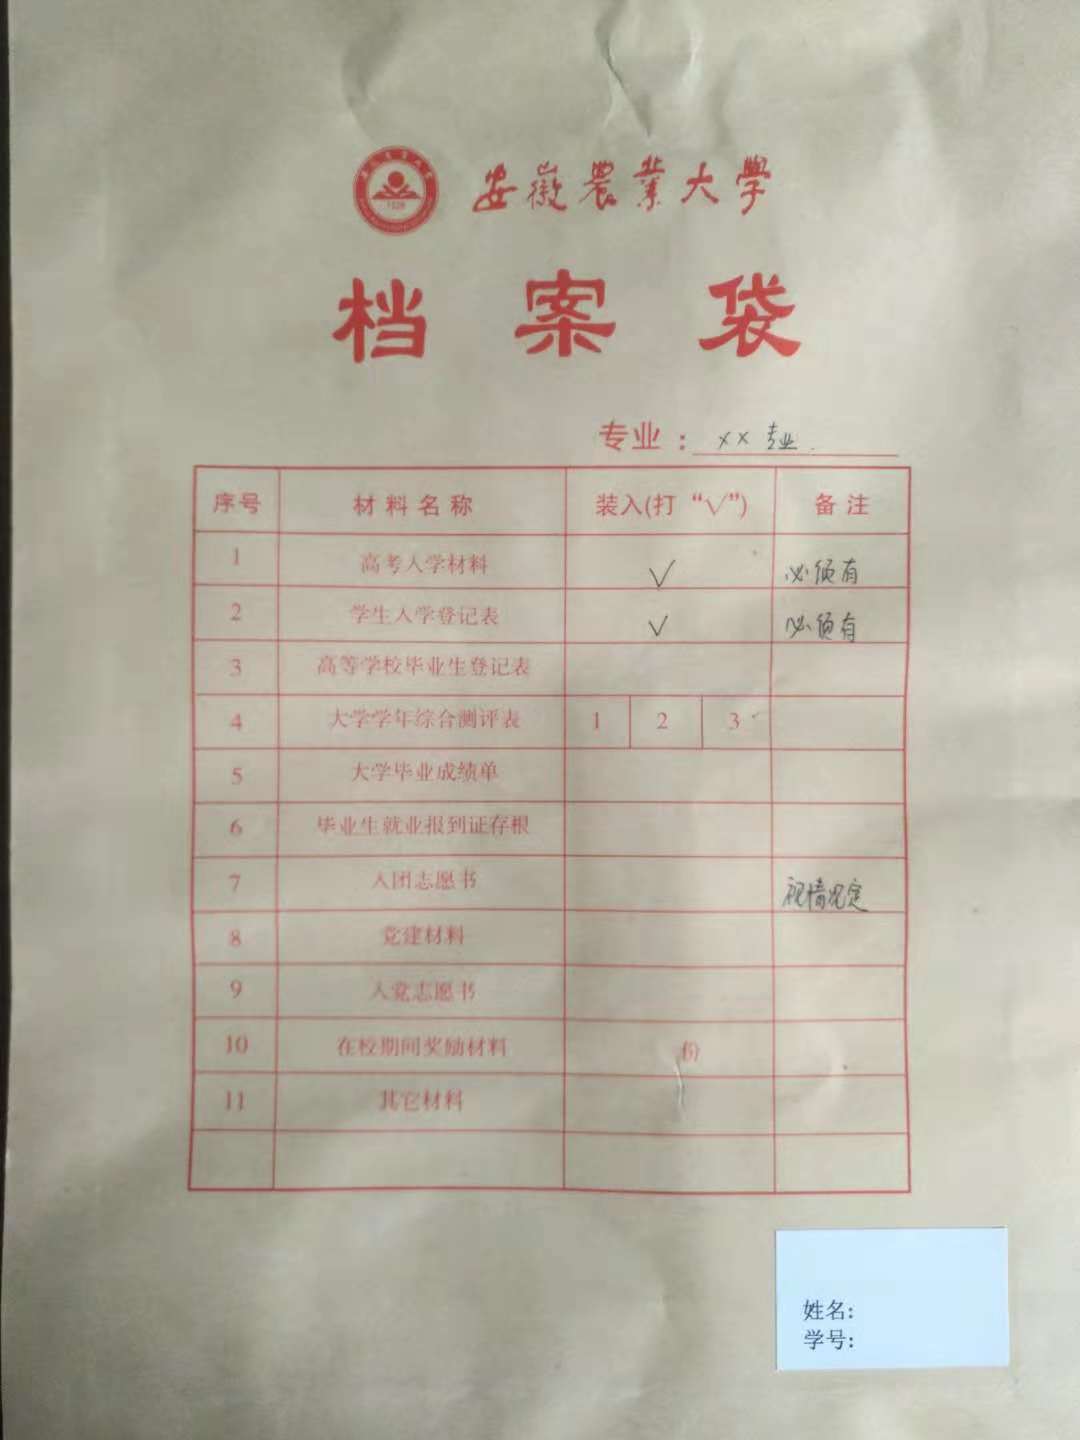 安徽農業大學
档案袋
专业：xx 专业
序号 材料名称 装入(打“√”) 备注
1 高考入学材料 √ 必须有
2 学生入学登记表 √ 必须有
3 高等学校毕业生登记表
4 大学学年综合测评表 1 2 3
5 大学毕业成绩单
6 毕业生就业报到证存根
7 入团志愿书 视情况定
8 党建材料
9 入党志愿书
10 在校期间奖励材料 份
11 其它材料
姓名:
学号: